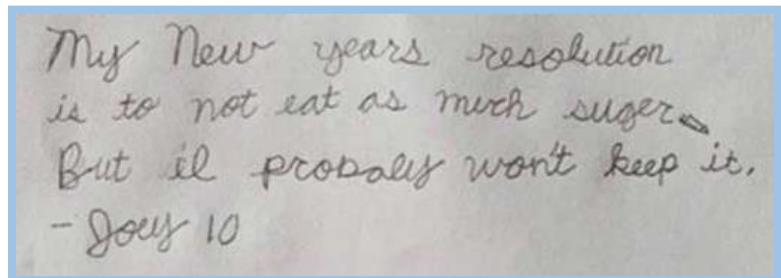 My New years resolution
is to not eat as much suger.
But il probaly won't keep it.
- Joey 10